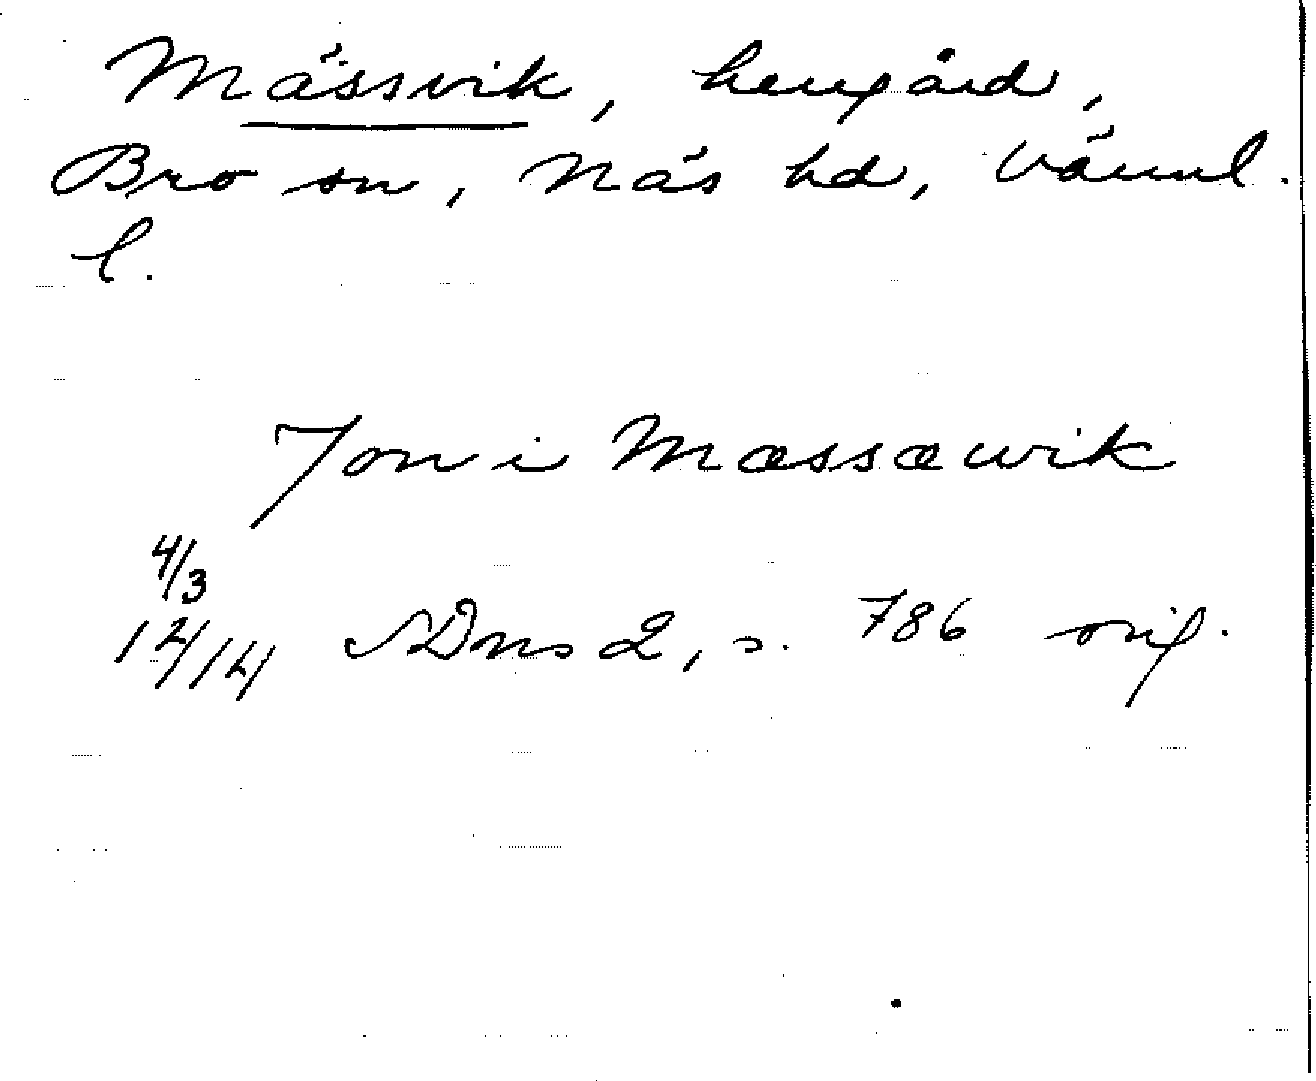 Mässvik, herrgård,
Bro sn, Näs hd, Värml.
l.
Jon i Mæssæwik
4/3
12/14 SDns 2, s. 786 orig.